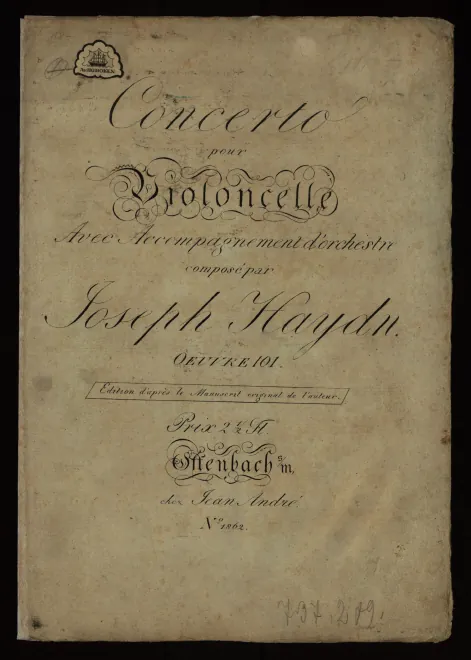 Concerto
pour
Violoncelle
Avec Accompagnement d'orchestre
composé par
Joseph Haydn.
OEUVRE 101.
Edition d'après le Manuscrit original de l'auteur.
Prix 2 1/2 Fl
Offenbach a/m,
chez Jean André
No. 1862.
737.219.